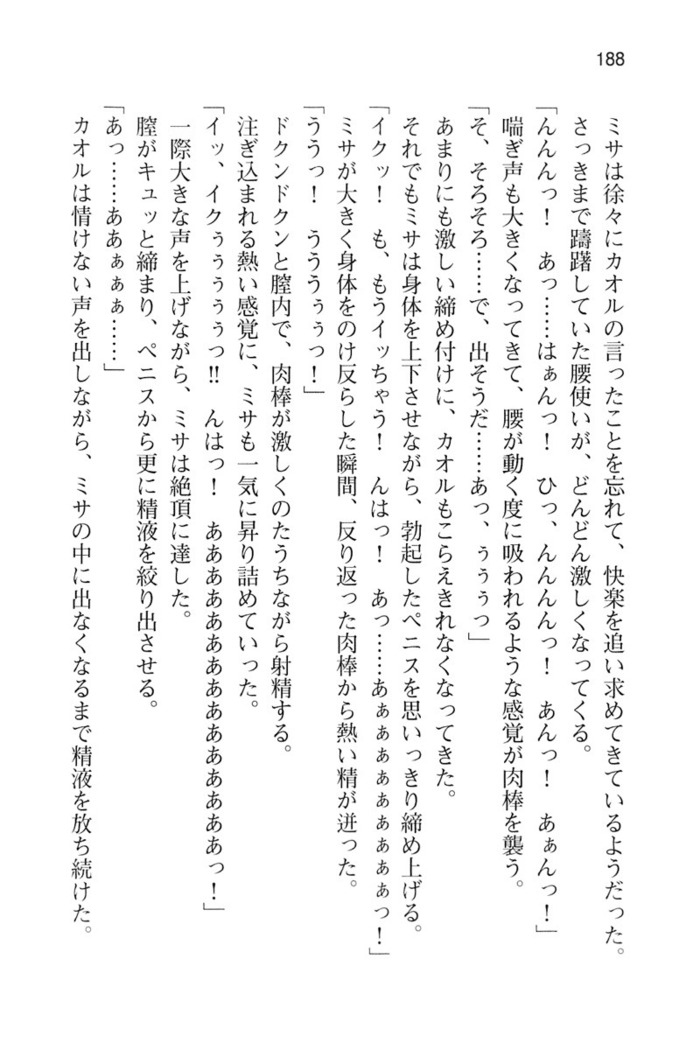 188
ミサは徐々にカオルの言ったことを忘れて、快楽を追い求めてきているようだった。
さっきまで躊躇していた腰使いが、どんどん激しくなってくる。
「んんんっ！　あっ……はぁんっ！　ひっ、んんんんっ！　あんっ！　あぁんっ！」
喘ぎ声も大きくなってきて、腰が動く度に吸われるような感覚が肉棒を襲う。
「そ、そろそろ……で、出そうだ……あっ、ぅぅぅっ」
あまりにも激しい締め付けに、カオルもこらえきれなくなってきた。
それでもミサは身体を上下させながら、勃起したペニスを思いっきり締め上げる。
「イクッ！　も、もうイッちゃう！　んはっ！　あっ……あぁぁぁぁぁぁぁぁっ！」
ミサが大きく身体をのけ反らした瞬間、反り返った肉棒から熱い精が迸った。
「ううっ！　うううぅぅっ！」
ドクンドクンと膣内で、肉棒が激しくのたうちながら射精する。
注ぎ込まれる熱い感覚に、ミサも一気に昇り詰めていった。
「イッ、イクぅぅぅぅぅっ!!　んはっ！　ああああああああああああああああっ！」
一際大きな声を上げながら、ミサは絶頂に達した。
膣がキュッと締まり、ペニスから更に精液を絞り出させる。
「あっ……ああぁぁぁ……」
カオルは情けない声を出しながら、ミサの中に出なくなるまで精液を放ち続けた。